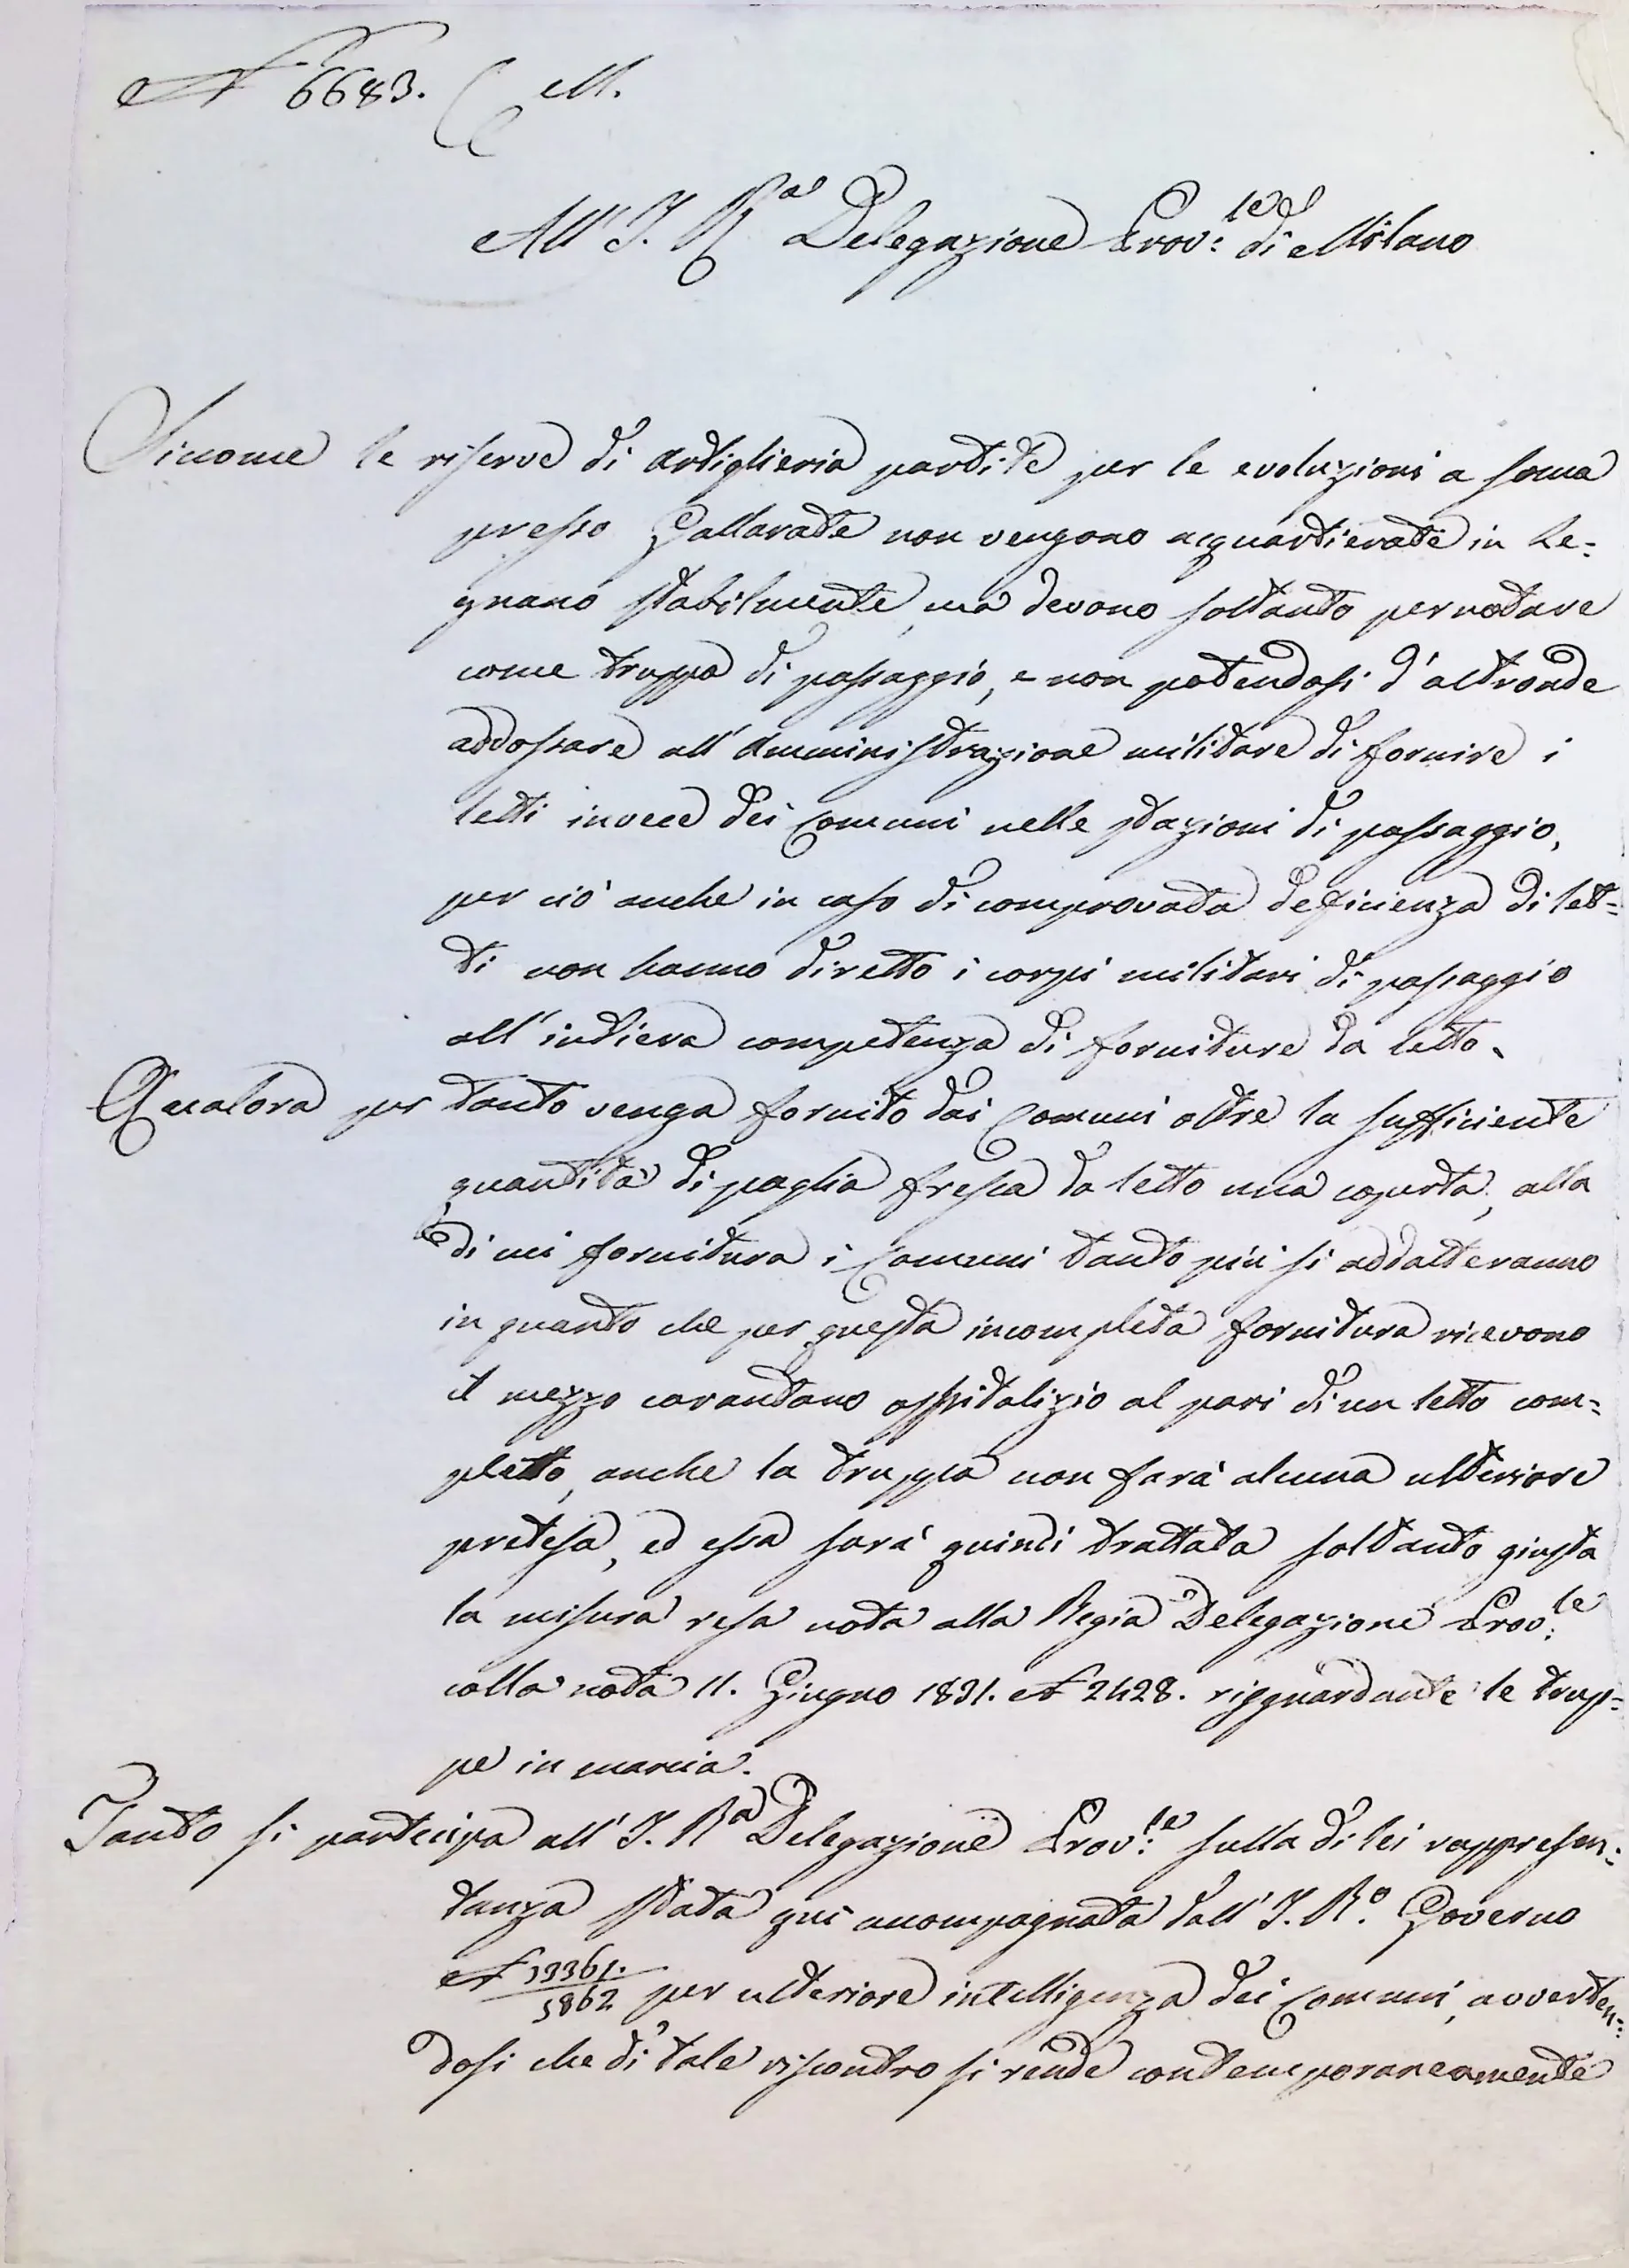 N. 6683. M.
All' I. R.a Delegazione Prov:le di Milano
Siccome le riserve di Artiglieria partite per le evoluzioni a Soma
presso Gallarate non vengono acquartierate in Le=
gnano stabilmente, ma devono soltanto pernotare
come truppa di passaggio, e non potendosi d'altronde
addossare all' Amministrazione militare di fornire i
letti invece dei Comuni nelle stazioni di passaggio,
per ciò anche in caso di comprovata deficienza di let=
ti non hanno diretto i corpi militari di passaggio
all' intiera competenza di forniture da letto.
Qualora per tanto venga fornito dai Comuni oltre la sufficiente
quantità di paglia fresca da letto una coperta, alla
di cui fornitura i Comuni tanto più si addatteranno
in quanto che per questa incompleta fornitura ricevono
il mezzo carantano ospitalizio al pari di un letto com=
pletto, anche la truppa non farà alcuna ulteriore
pretesa, ed essa sarà quindi trattata soltanto giusta
la misura resa nota alla Regia Delegazione Prov:le
colla nota 11. Giugno 1831. N. 2428. risguardante le trup=
pe in marcia.
Tanto si partecipa all' I. R.a Delegazione Prov:le sulla di lei rappresen=
tanza stata qui accompagnata dall' I. R.o Governo
N. 33361./3862 per ulteriore intelligenza dei Comuni, avverten=
dosi che di tale riscontro si rende contemporaneamente